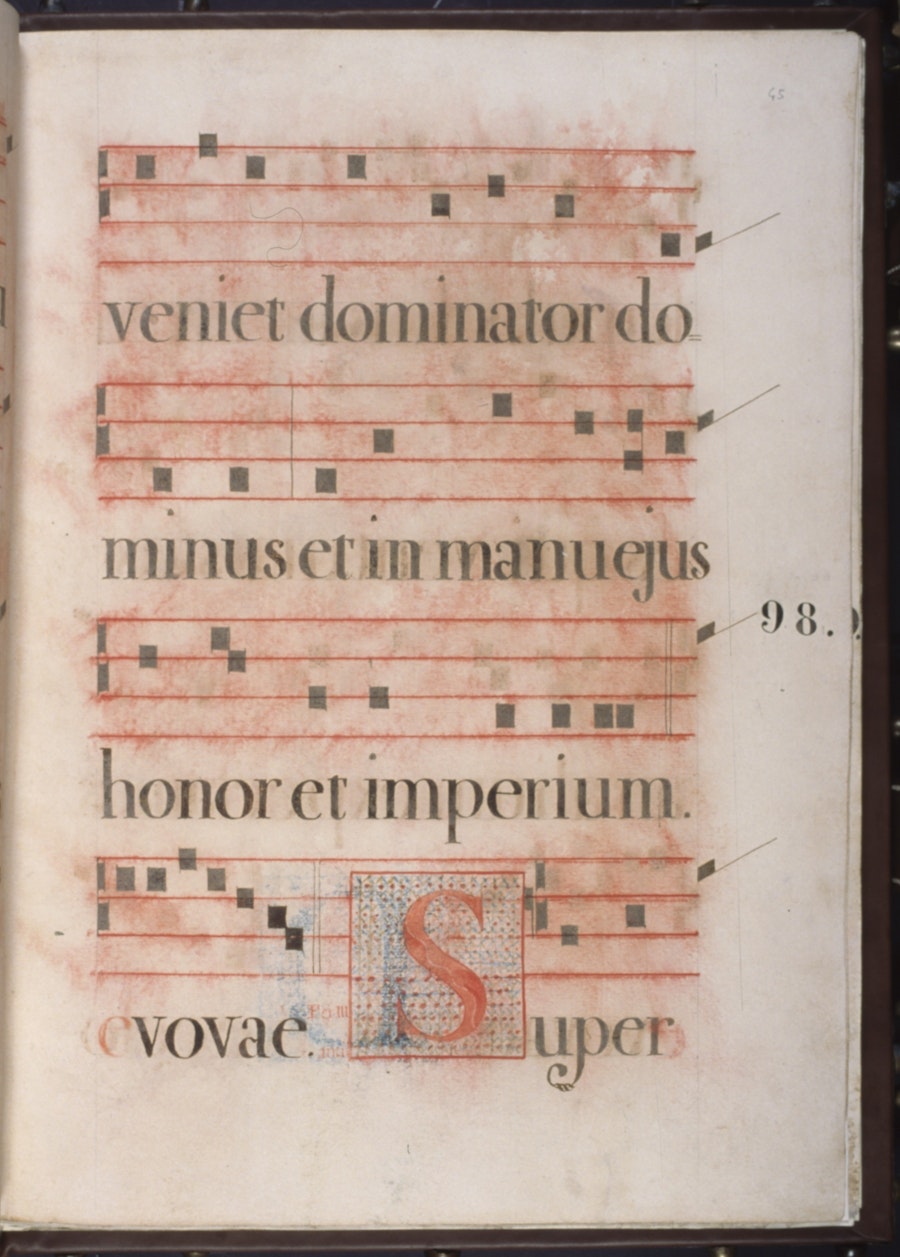 45
veniet dominator do=
minus et in manu ejus
98.
honor et imperium.
evovae. Super